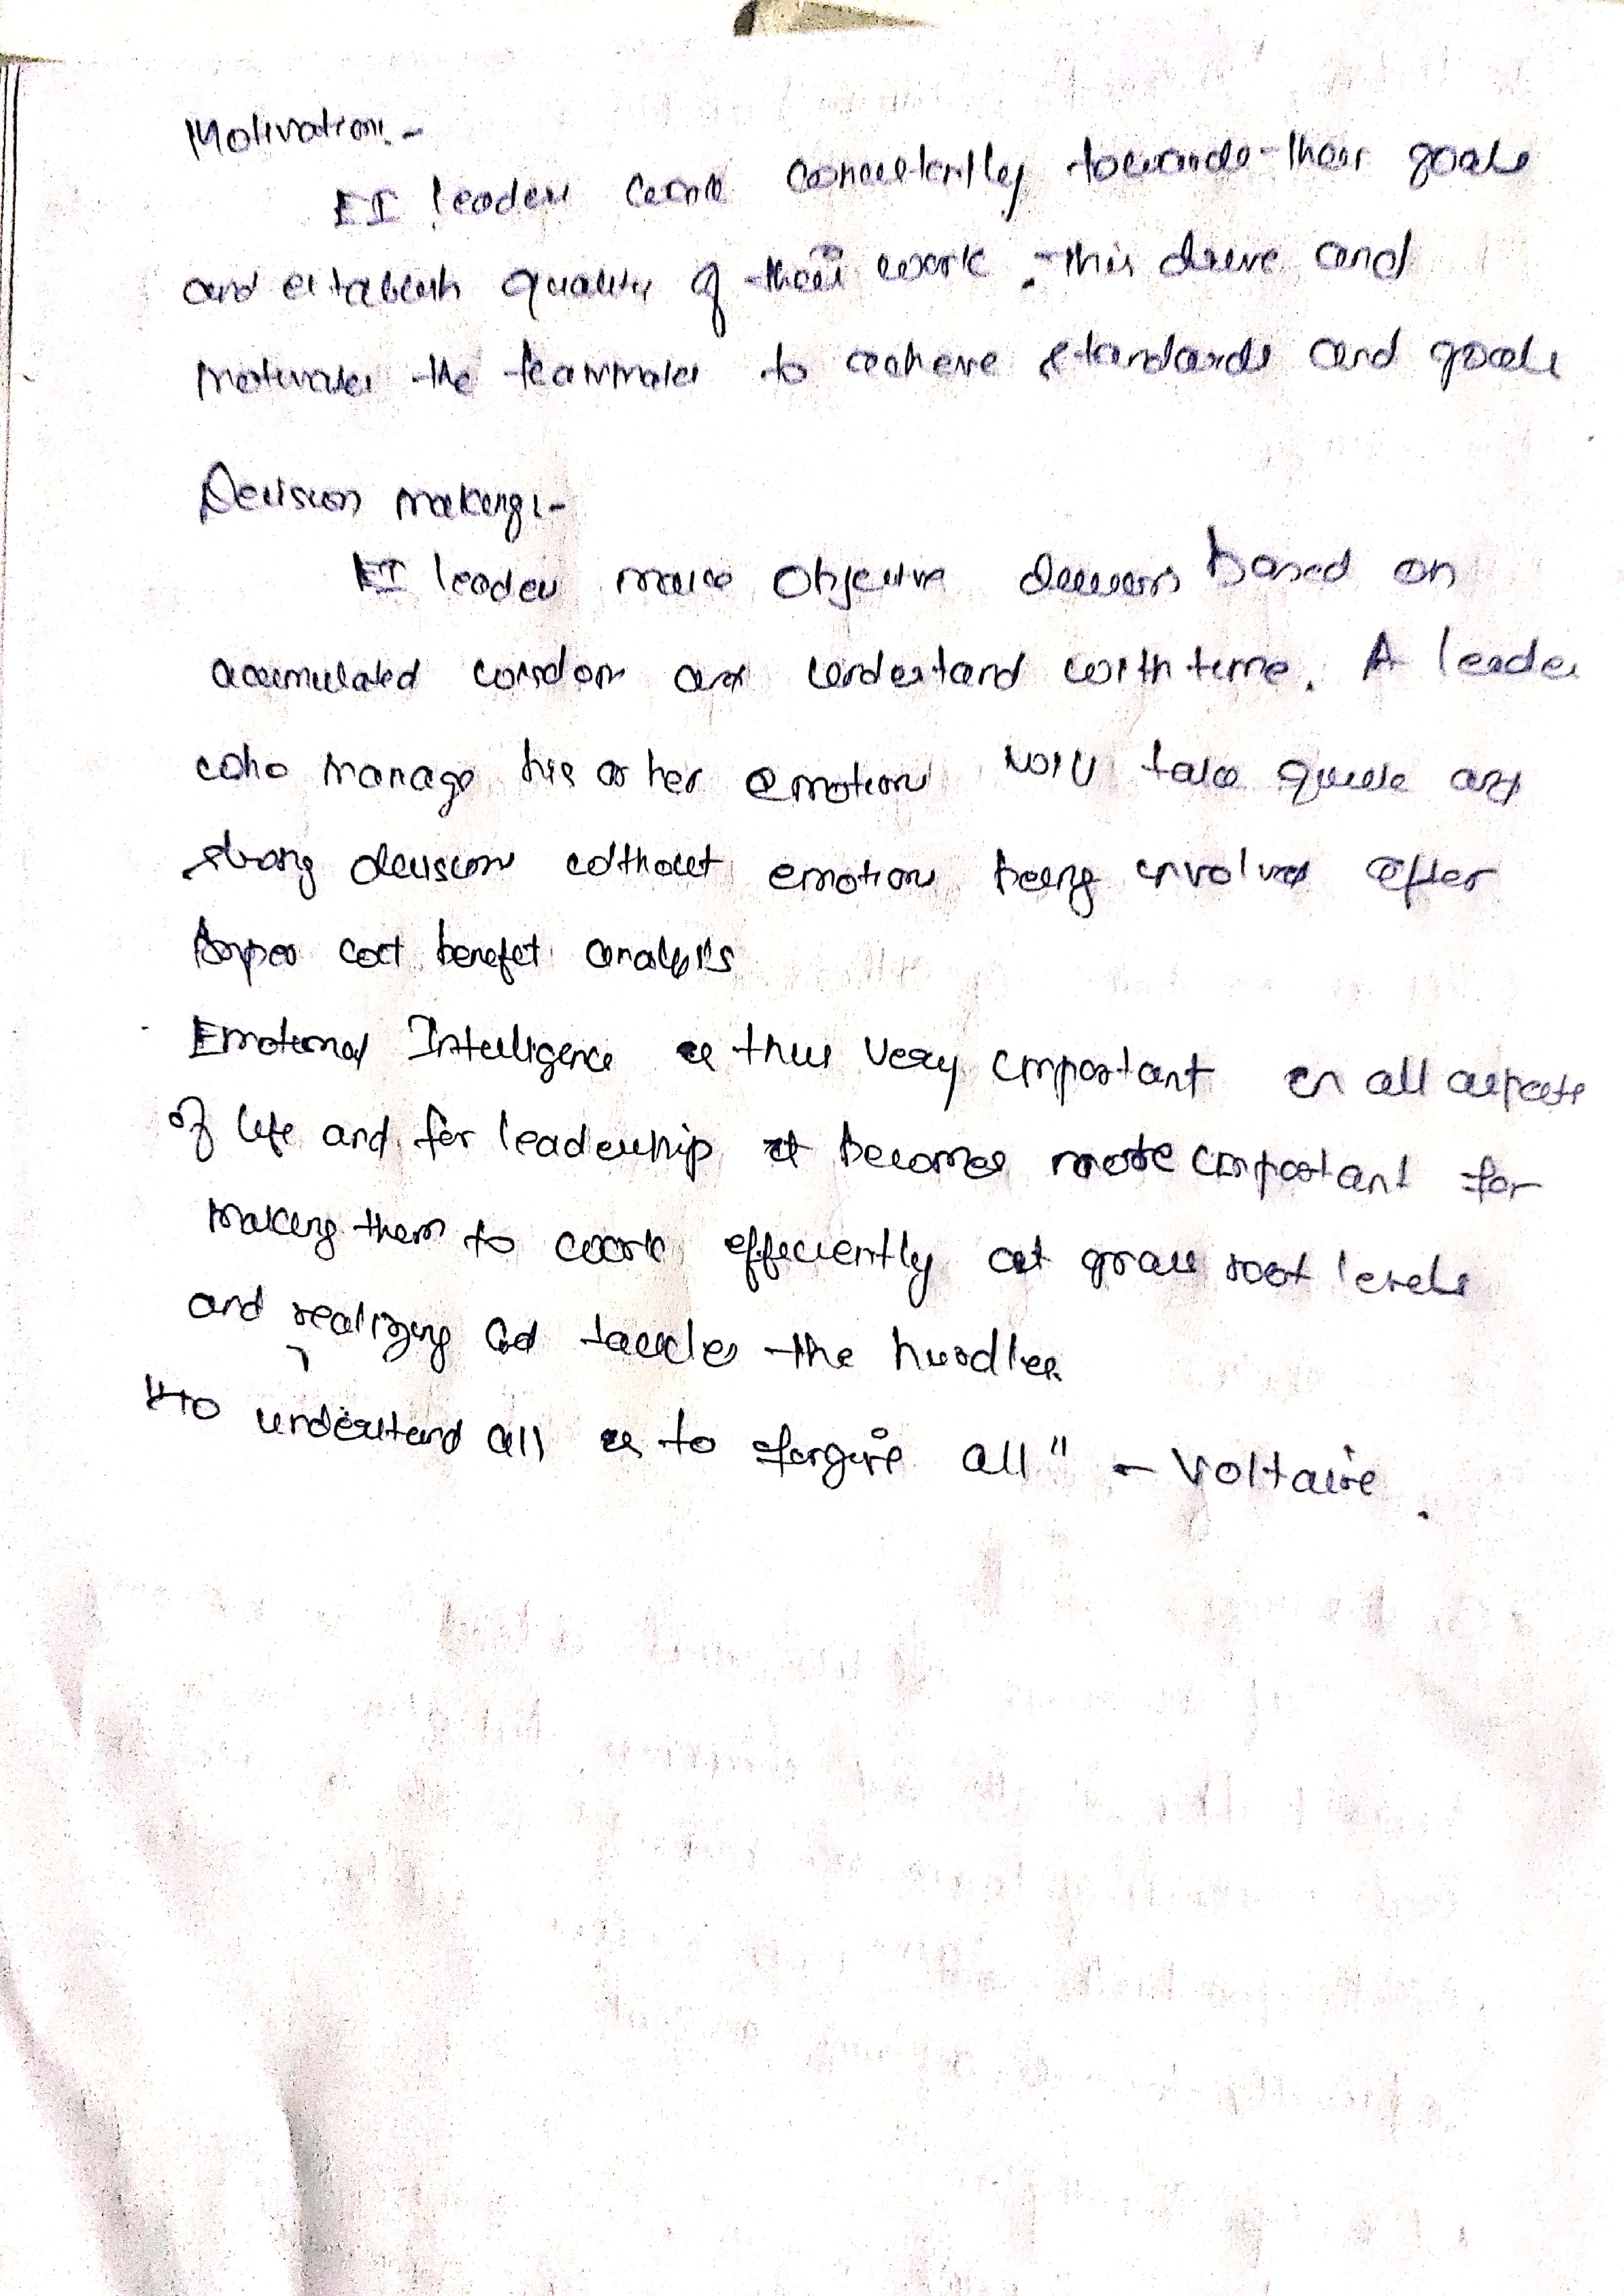 Motivation:-
EI leaders work consistently towards their goals
and establish quality of their work. This drive and
motivates the teammates to achieve standards and goals
Decision making:-
EI leader make objective decisions based on
accumulated wisdom and understand with time. A leader
who manage his or her emotion will take quick and
strong decision without emotion being involved after
proper cost benefit analysis
Emotional Intelligence is thus very important in all aspects
of life and for leadership it becomes more important for
making them to work efficiently at grass root levels
and realizing and tackles the hurdles.
"To understand all is to forgive all" - Voltaire.